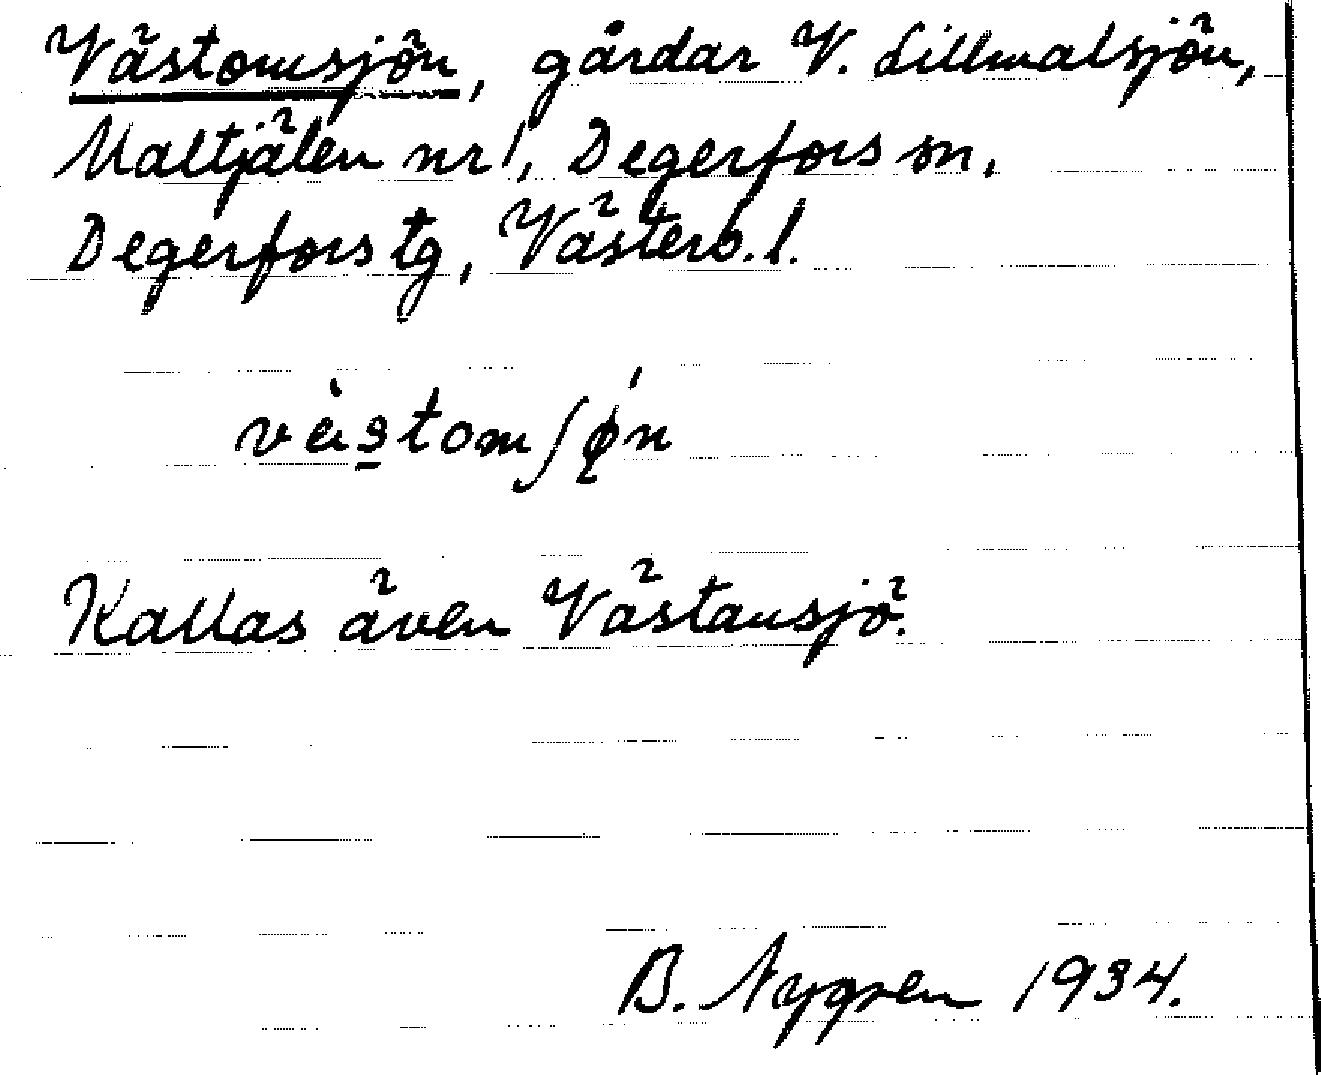 Västomsjön, gårdar V. Lillmalsjön,
Maltjälen nr 1, Degerfors sn,
Degerfors tg, Västerb. l.
vä̀stomʃǿn
Kallas även Västansjö.
B. Nygren 1934.